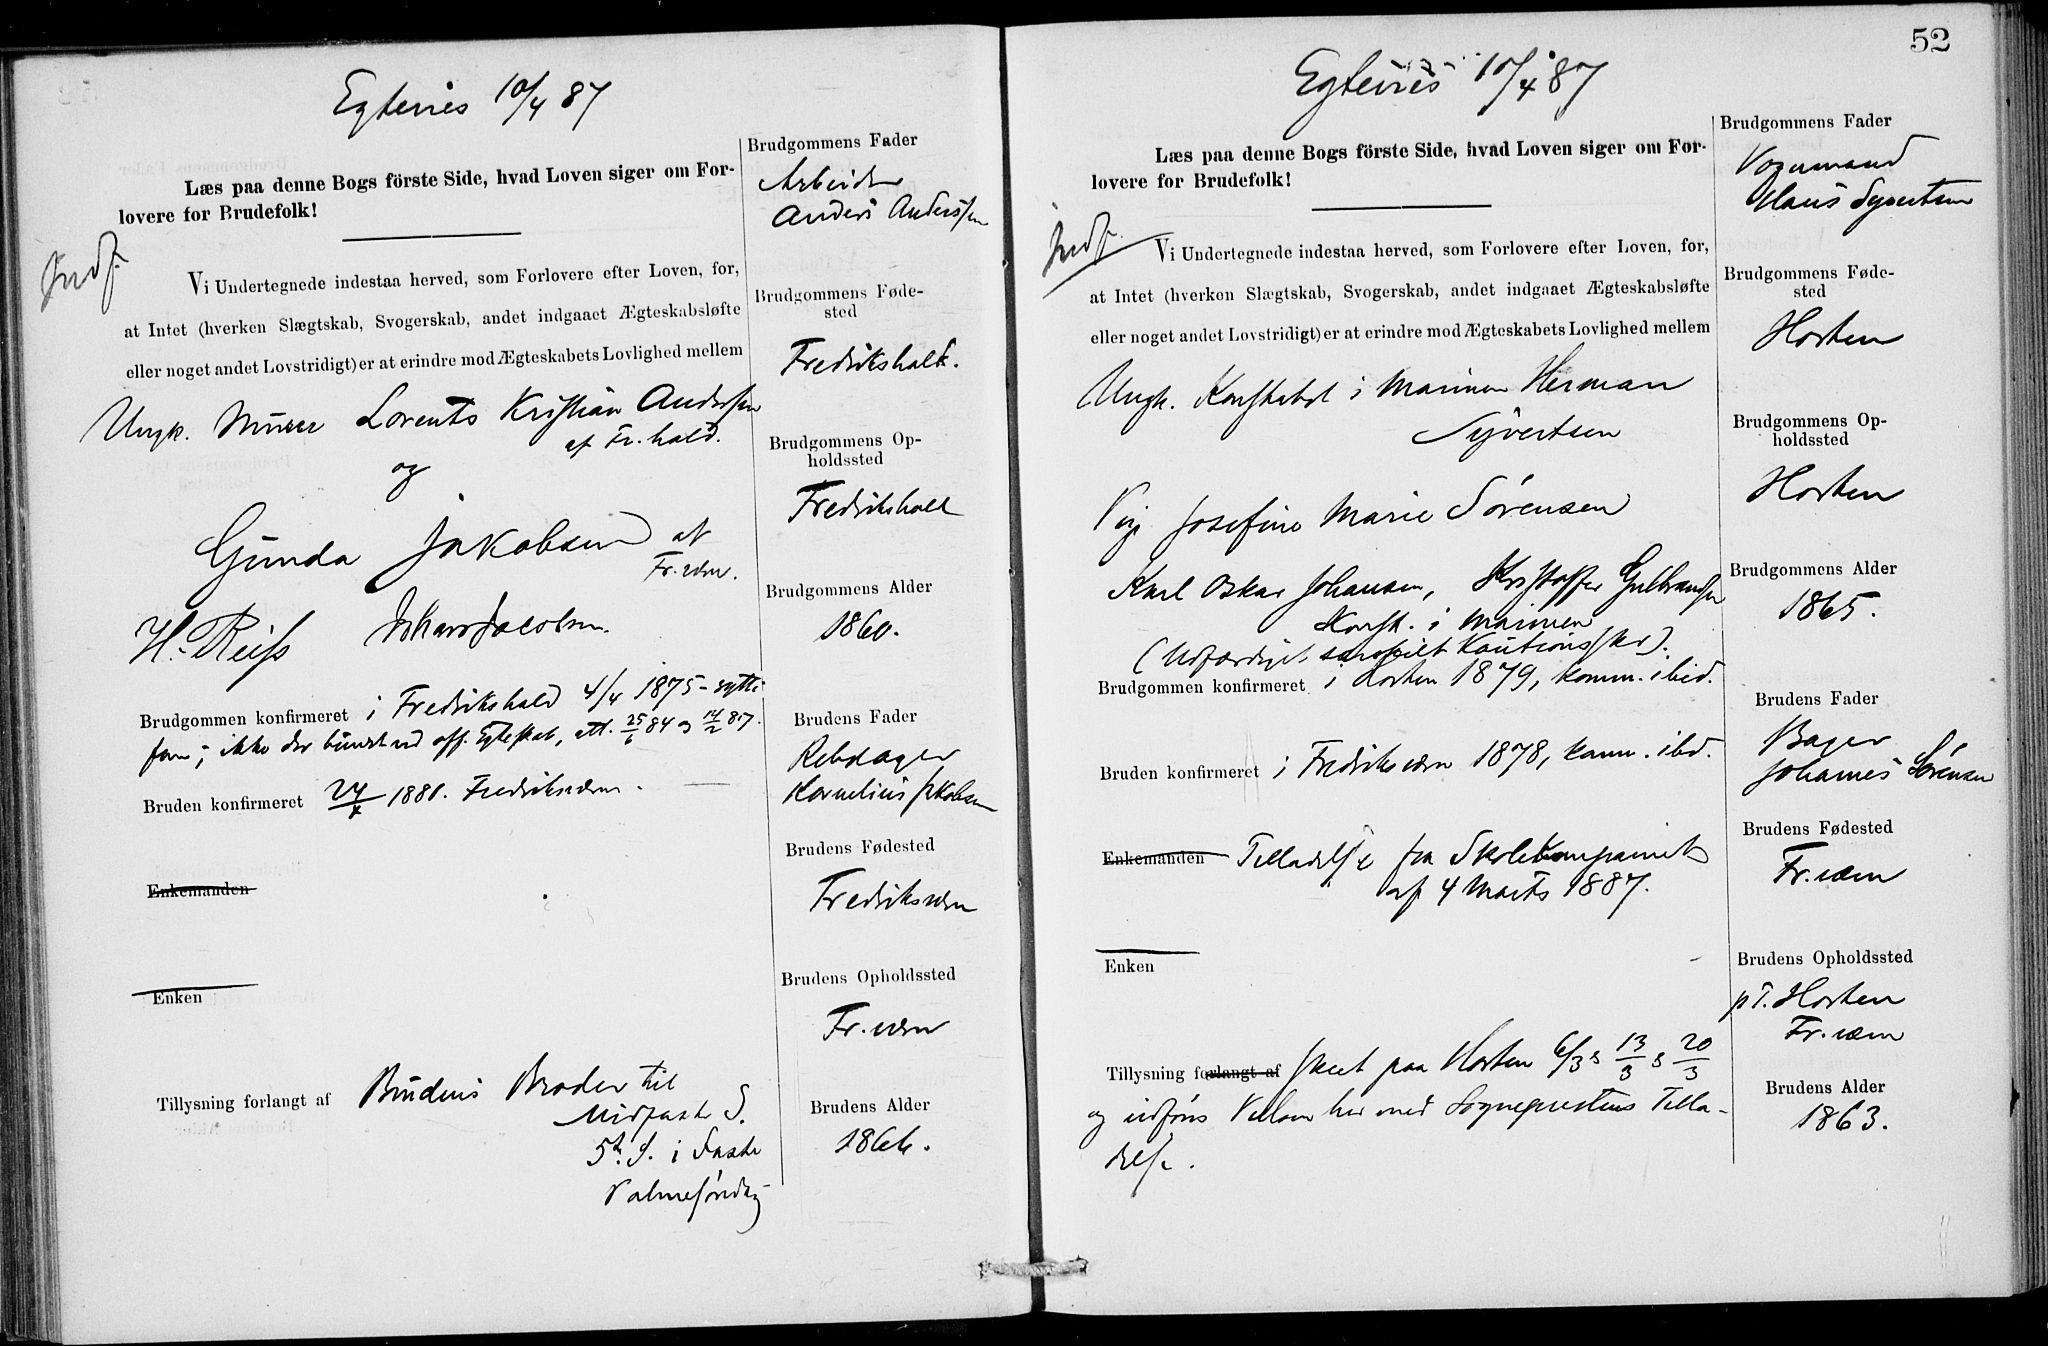 Egtevies 10/4 87
Læs paa denne Bogs förste Side, hvad Loven siger om For-
lovere for Brudefolk!
Indf.
Vi Undertegnede indestaa herved, som Forlovere efter Loven, for,
at Intet (hverken Slægtskab, Svogerskab, andet indgaaet Ægteskabsløfte
eller noget andet Lovstridigt) er at erindre mod Ægteskabets Lovlighed mellem
Ungk. Murer Lorents Kristian Anderssen
af Fr.hald.
og
Gunda Jakobsen af
Fr.værn.
H. Reiss Johan Jacobsen
Brudgommen konfirmeret i Fredrikshald 4/4 1875 - sytti
fem; ikke der bundet ved Egteskab, att. 25/6 84 og 14/2 87.
Bruden konfirmeret 1881. Fredriksværn.
Enkemanden
Enken
Tillysning forlangt af Brudens Broder til
Midfaste S.
5te S. i Faste
Palmesøndag
Brudgommens Fader
Arbeider
Anders Anderssen
Brudgommens Føde-
sted
Fredrikshald.
Brudgommens Op-
holdssted
Fredrikshald
Brudgommens Alder
1860.
Brudens Fader
Rebslager
Kornelius Jakobsen
Brudens Fødested
Fredriksværn
Brudens Opholdssted
Fr.værn
Brudens Alder
1866.
52
Egtevies 10/4 87
Læs paa denne Bogs förste Side, hvad Loven siger om For-
lovere for Brudefolk!
Indf.
Vi Undertegnede indestaa herved, som Forlovere efter Loven, for,
at Intet (hverken Slægtskab, Svogerskab, andet indgaaet Ægteskabsløfte
eller noget andet Lovstridigt) er at erindre mod Ægteskabets Lovlighed mellem
Ungk. Konstabel i Marinen Herman
Syvertsen
Pige Josefine Marie Sørensen
Karl Oskar Johansen, Kristoffer Gulbrandsen
Konst. i Marinen
(Udfærdiget specielt Kautionsskr.).
Brudgommen konfirmeret i Horten 1879, komm. ibid.
Bruden konfirmeret i Fredriksværn 1878, komm. ibid.
Enkemanden Tilladelse fra Skolekompaniet
af 4 Marts 1887.
Enken
Tillysning forlangt af skeet paa Horten 6/3 & 13/3 & 20/3
og udføres Vielsen her med Sognepræstens Tilla-
delse.
Brudgommens Fader
Vognmand
Hans Syvertsen
Brudgommens Føde-
sted
Horten
Brudgommens Op-
holdssted
Horten
Brudgommens Alder
1865.
Brudens Fader
Bager
Johannes Sørensen
Brudens Fødested
Fr.værn
Brudens Opholdssted
p.T. Horten
Fr.værn
Brudens Alder
1863.